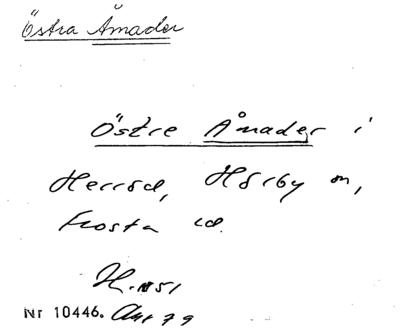 Östra Åmader
Östre Åmader i
Herröd, Hörby sn,
Frosta
Nr 10446. 79